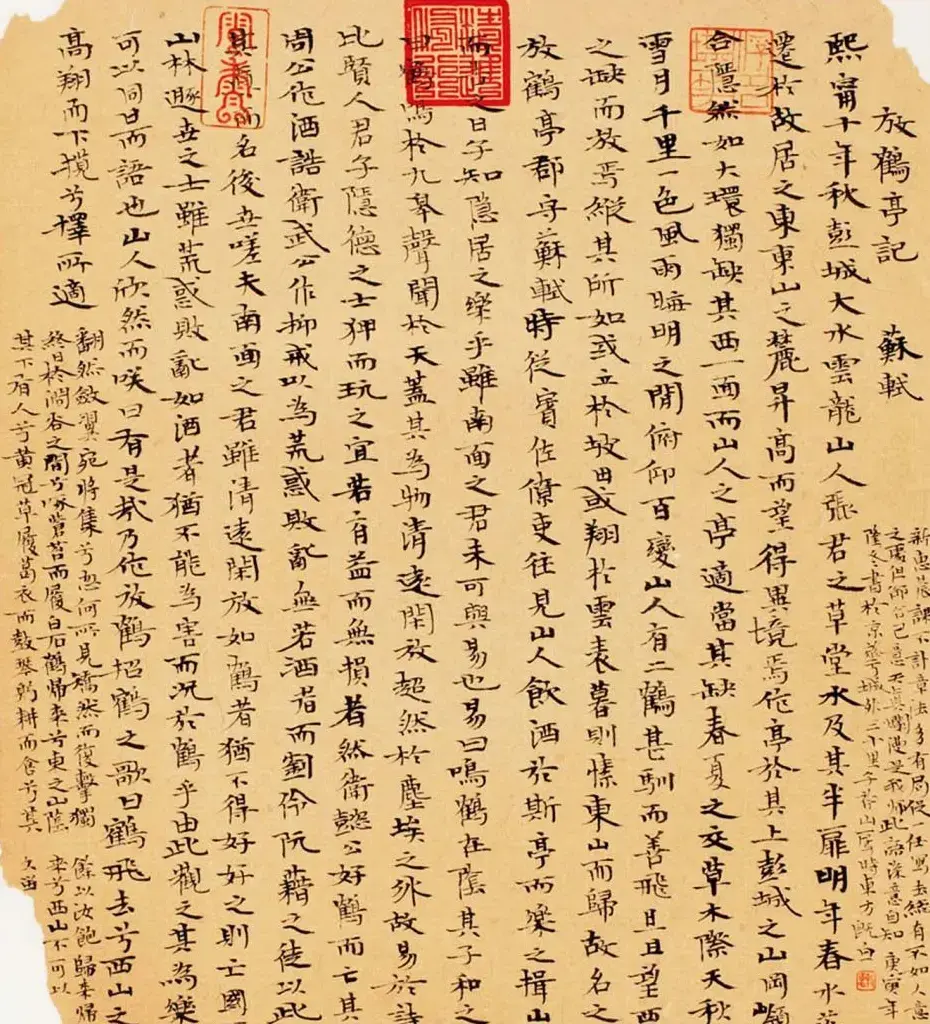 放鶴亭記 蘇軾
熙甯十年秋彭城大水雲龍山人張君之草堂水及其半扉明年春水
遷於故居之東東山之麓昇高而望得異境焉作亭於其上彭城之山岡嶺
合隱然如大環獨缺其西一面而山人之亭適當其缺春夏之交草木際天秋
雪月千里一色風雨晦明之間俯仰百變山人有二鶴甚馴而善飛旦旦望西
之缺而放焉縱其所如或立於坡田或翔於雲表暮則愫東山而歸故名之
放鶴亭郡守蘇軾時從賓佐僚吏往見山人飲酒於斯亭而樂之揖山
而之曰子知隱居之樂乎雖南面之君未可與易也易曰鳴鶴在陰其子和之
鳴於九皋聲聞於天蓋其為物清遠閑放超然於塵埃之外故易於詩
比賢人君子隱德之士狎而玩之宜若有益而無損者然衛懿公好鶴而亡其
周公作酒誥衛武公作抑戒以為荒惑敗亂無若酒者而劉伶阮籍之徒以此
其而名後世嗟夫南面之君雖清遠閑放如鶴者猶不得好好之則亡國
山林遯世之士雖荒惑敗亂如酒者猶不能為害而況於鶴乎由此觀之其為樂
可以同日而語也山人欣然而咲曰有是哉乃作放鶴招鶴之歌曰鶴飛去兮西山之
高翔而下攬兮擇所適
翻然斂翼宛將集兮忽何所見矯然而復擊獨
終日於澗谷之間兮啄蒼苔而履白石鶴歸來兮東之山陰
其下有人兮黃冠草履葛衣而鼓琴躬耕而食兮其
餘以汝飽歸來歸
來兮西山不可以
久留
不計章法多有局促一任寫去終自不如人意
己意天真爛漫是我師此語深意自知庚寅年
隆冬書於京城外二十里山居時東方既白